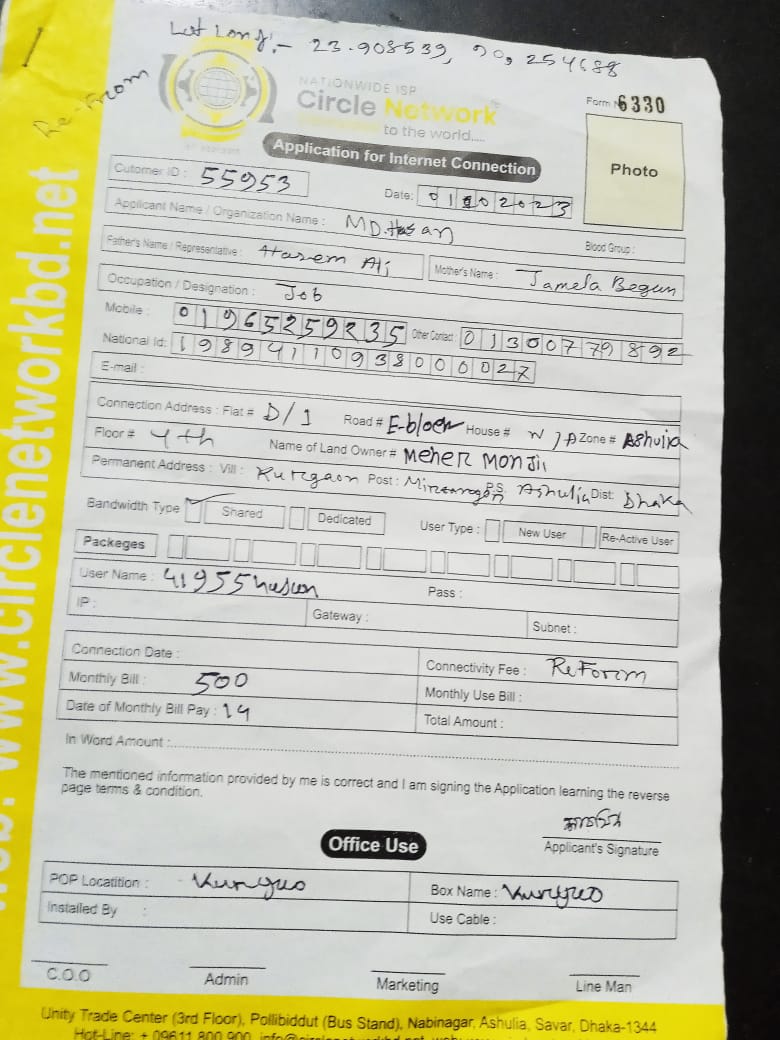 Lat Long:- 23.908539, 90, 254688
Re-From
NATIONWIDE ISP
Circle Network
to the world.....
Form N 6330
Application for Internet Connection
Photo
Cutomer ID : 55953
Date: 01 02023
Applicant Name / Organization Name : MD.Hasan
Blood Group :
Father's Name / Representative : Hazem Ali
Mother's Name : Jamela Begum
Occupation / Designation : Job
Mobile : 01965259235 Other Contact : 01300779892
National Id: 19894110938000027
E-mail :
Connection Address : Flat # D/1 Road # E-block House # Zone # Ashulia
Floor # 4th Name of Land Owner # MeHeR MonJil
Permanent Address : Vill : Kurgaon Post : P.S. Ashulia Dist: Dhaka
Bandwidth Type Shared Dedicated User Type : New User Re-Active User
Packeges
User Name : 41955hasan Pass :
IP : Gateway : Subnet :
Connection Date : Connectivity Fee : ReForm
Monthly Bill : 500 Monthly Use Bill :
Date of Monthly Bill Pay : 14 Total Amount :
In Word Amount :
The mentioned information provided by me is correct and I am signing the Application learning the reverse
page terms & condition.
Applicant's Signature
Office Use
POP Locatition : Box Name :
Installed By : Use Cable :
C.O.O Admin Marketing Line Man
Unity Trade Center (3rd Floor), Pollibiddut (Bus Stand), Nabinagar, Ashulia, Savar, Dhaka-1344
Hot-Line: + 09611 800 900,
www.circlenetworkbd.net